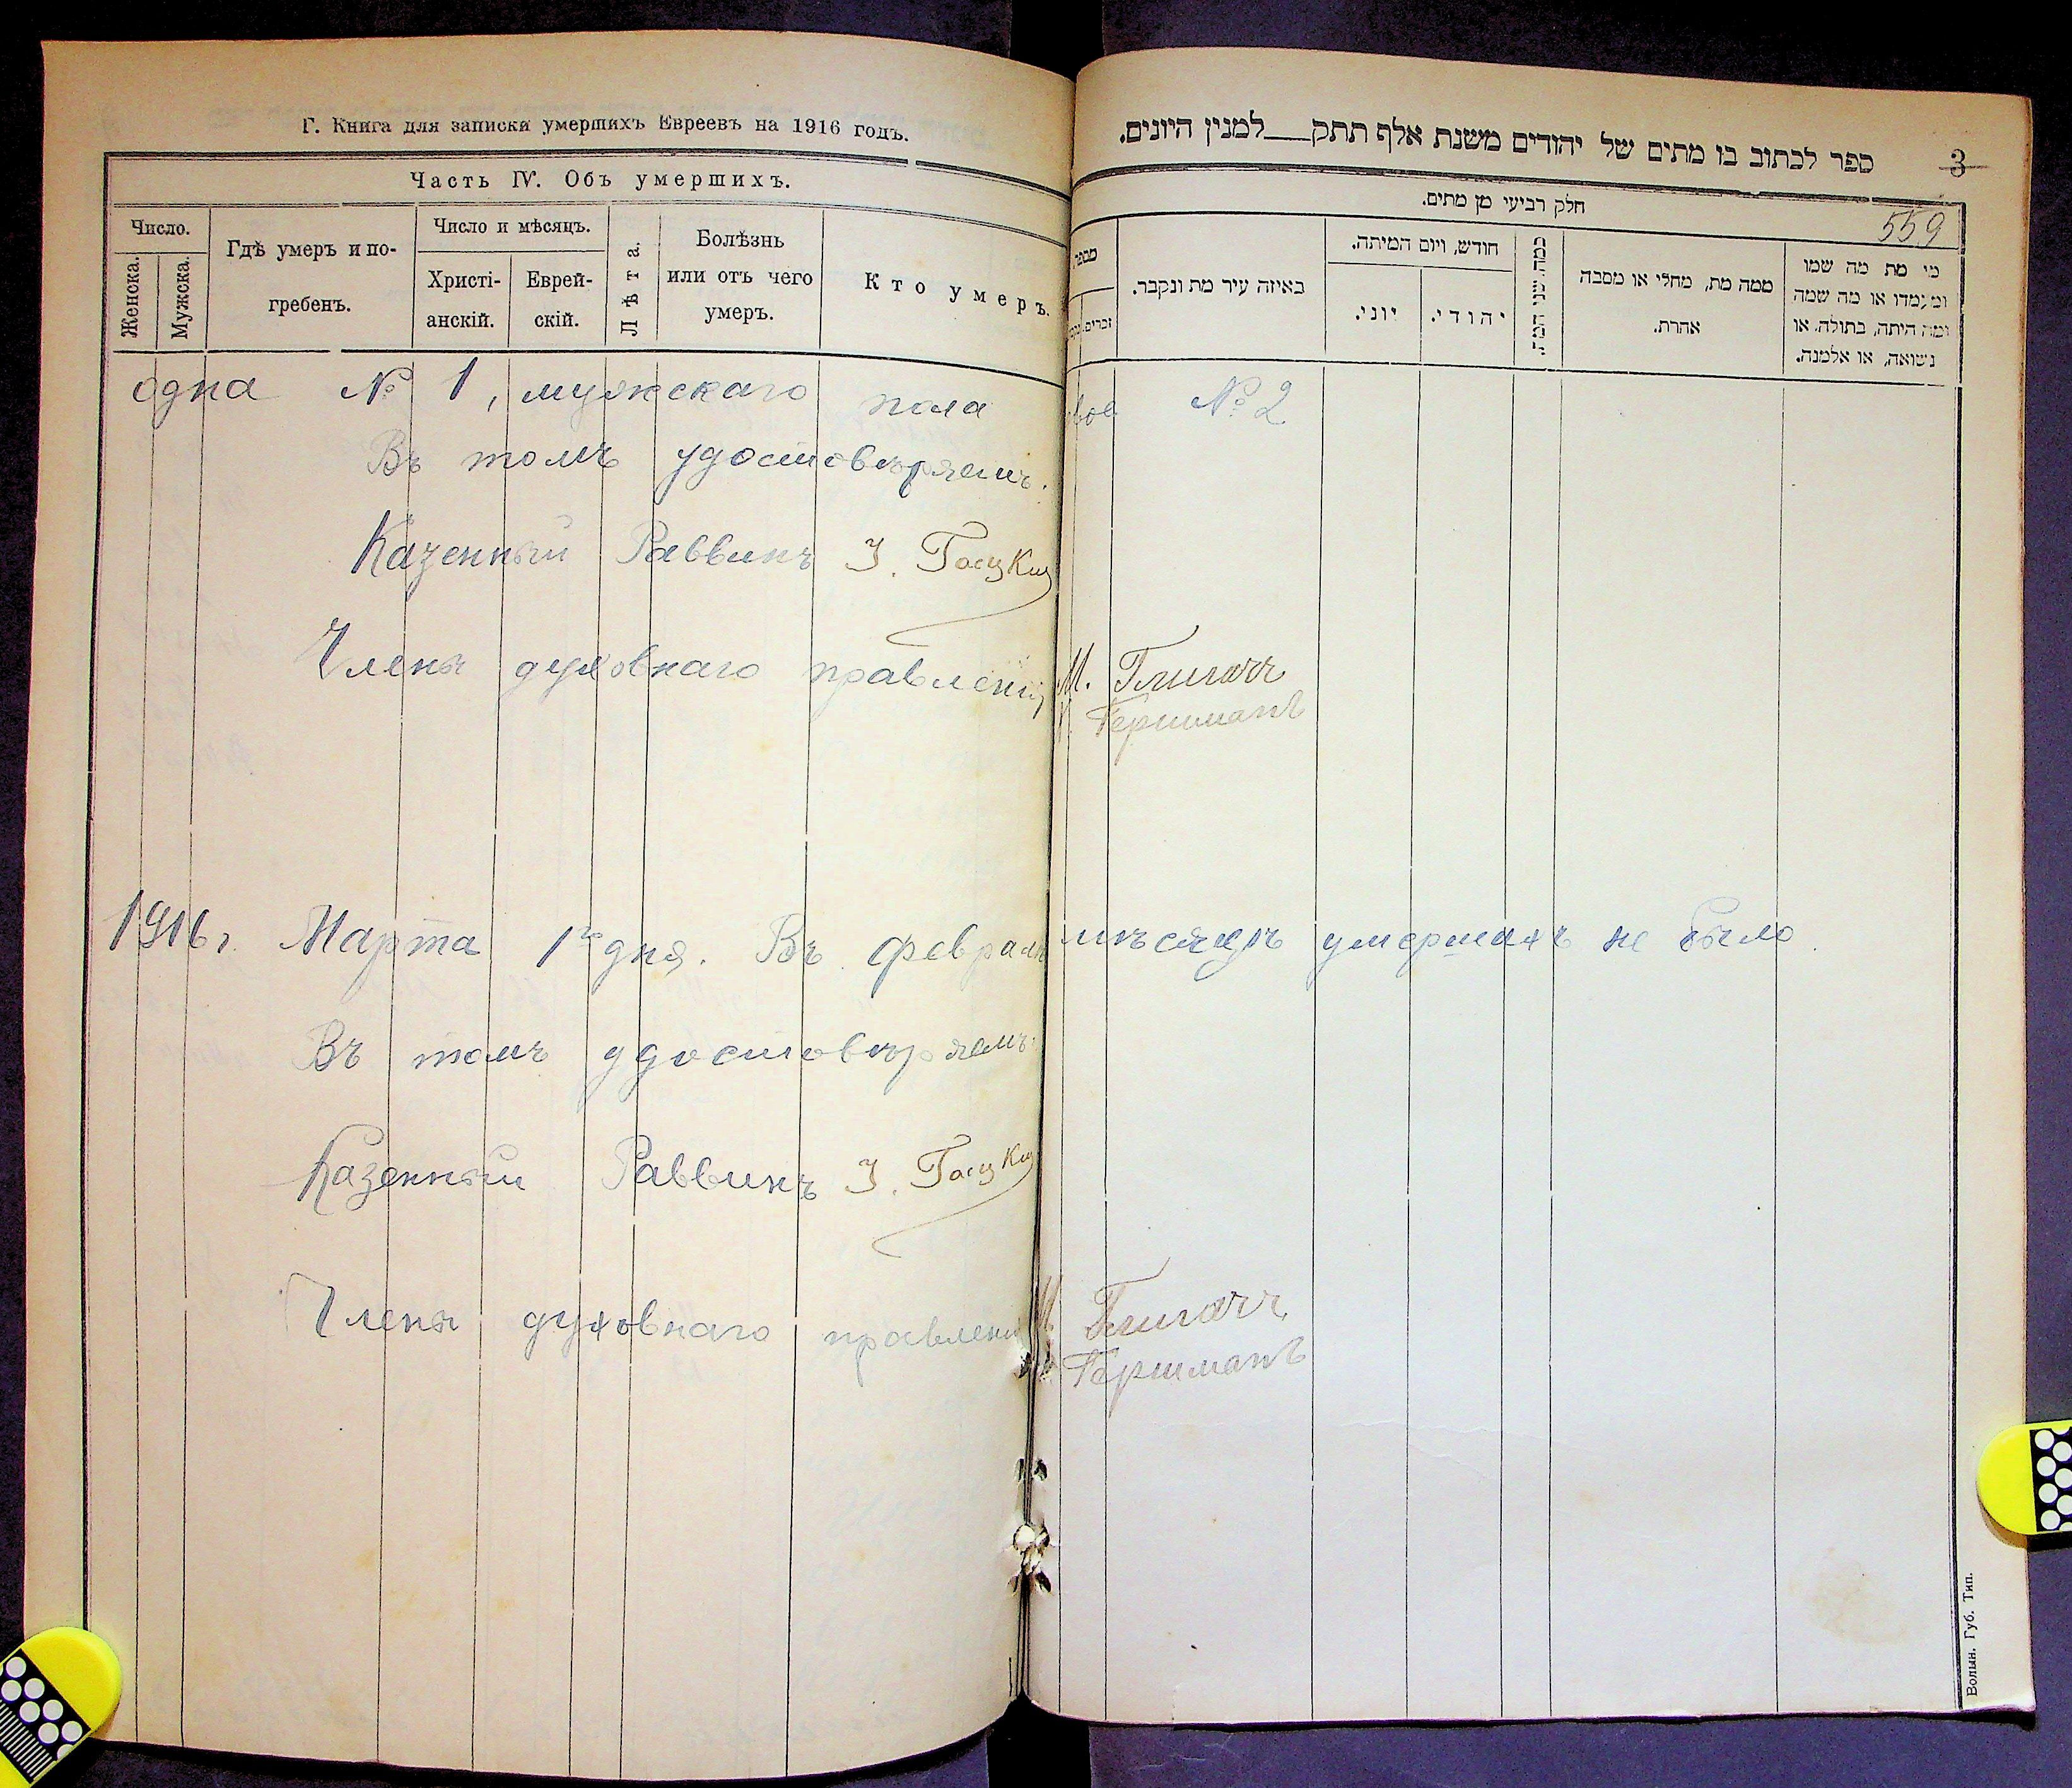 Г. Книга для записки умершихъ Евреевъ на 1916 годъ.
Часть IV. Объ умершихъ.
Число.
Женска.
Мужска.
Гдѣ умеръ и по-
гребенъ.
Число и мѣсяцъ.
Христі-
анскій.
Еврей-
скій.
Лѣта.
Болѣзнь
или отъ чего
умеръ.
Кто умеръ.
одна № 1, мужскаго пола
Въ томъ удостовѣряемъ.
Казенный Раввинъ І.
Члены духовнаго правленія
1916 г. Марта 1го дня. Въ февралѣ мѣсяцѣ умершихъ не было.
Въ томъ удостовѣряемъ.
Казенный Раввинъ І.
Члены духовнаго правленія
ספר לכתוב בו מתים של יהודים משנת אלף תתק___למנין היונים.
3
חלק רביעי מן מתים.
559
מספר
זכרים.
באיזה עיר מת ונקבר.
חודש, ויום המיתה.
יוני.
יהודי.
כמה שני המת.
ממה מת, מחלי או מסבה
אהרת.
מי מת מה שמו
ומעמדו או מה שמה
ומה היתה, בתולה או
נשואה, או אלמנה.
двое № 2
М.
Гершманъ
М.
Гершманъ
Волын. Губ. Тип.